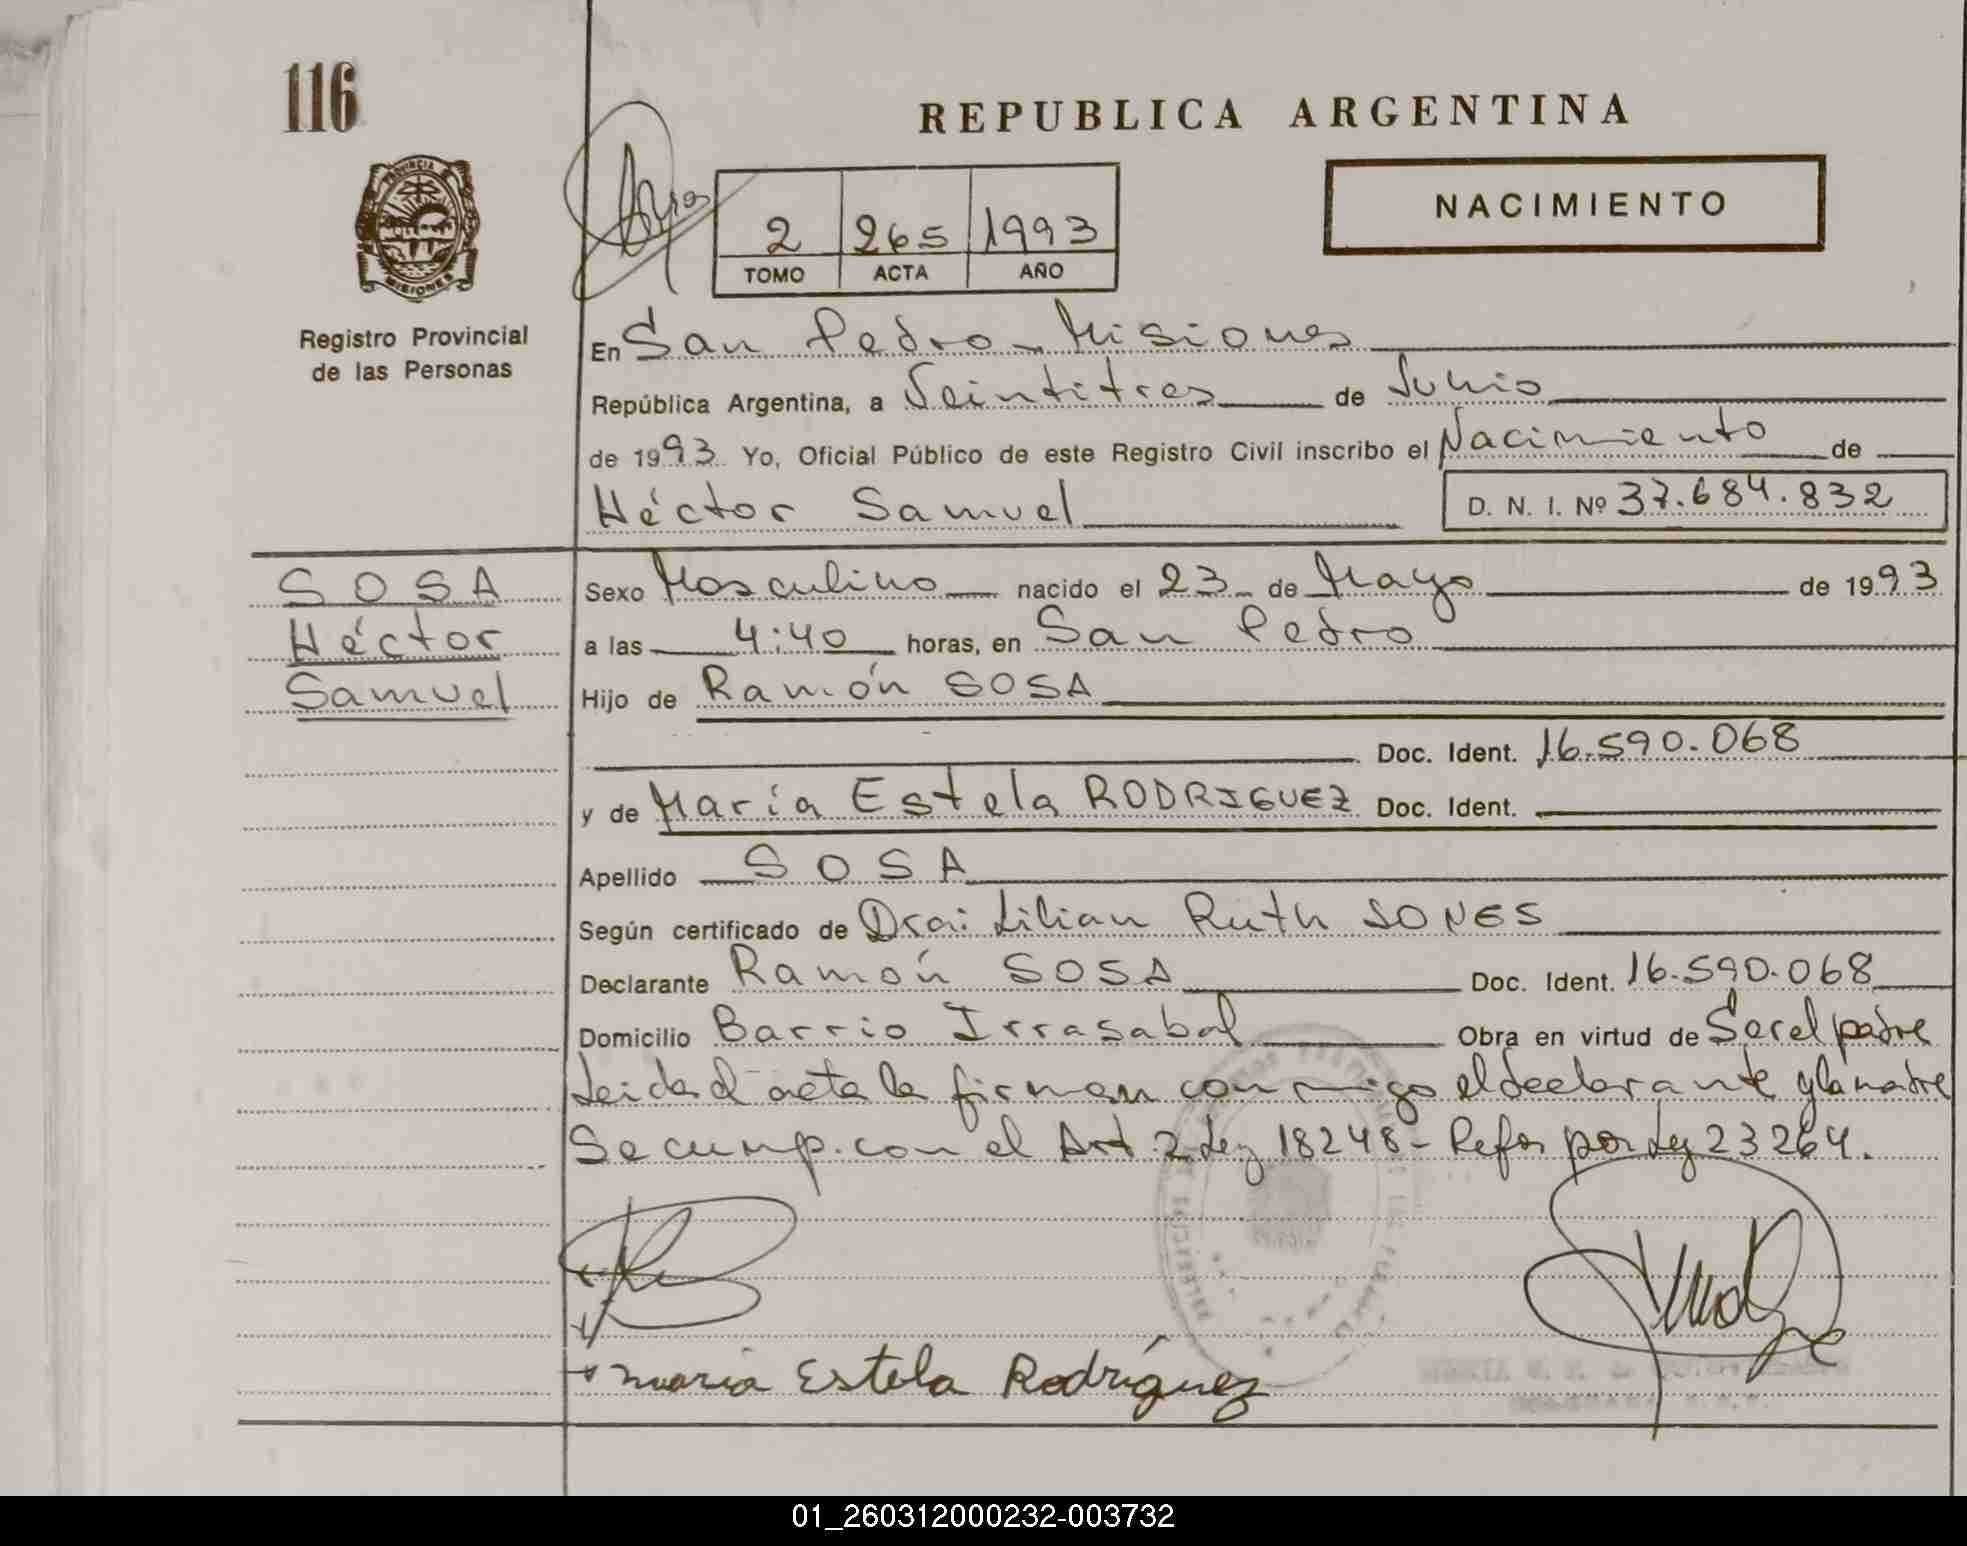 116
REPUBLICA ARGENTINA
NACIMIENTO
2 265 1993
TOMO ACTA AÑO
PROVINCIA DE
MISIONES
Registro Provincial
de las Personas
En San Pedro - Misiones
República Argentina, a Veintitres de Junio
de 1993 Yo, Oficial Público de este Registro Civil inscribo el Nacimiento de
Héctor Samuel D. N. I. Nº 37.684.832
SOSA
Héctor
Samuel
Sexo Masculino nacido el 23 de Mayo de 1993
a las 4:40 horas, en San Pedro
Hijo de Ramón SOSA
Doc. Ident. 16.590.068
y de María Estela RODRIGUEZ Doc. Ident.
Apellido SOSA
Según certificado de Dra: Lilian Ruth SONES
Declarante Ramón SOSA Doc. Ident. 16.590.068
Domicilio Barrio Irrasabal Obra en virtud de Ser el padre
Leida el acta la firman conmigo el declarante y la madre
Se cump. con el Art. 2 Ley 18248 - Refor por Ley 23264.
Maria Estela Rodríguez
01_260312000232-003732